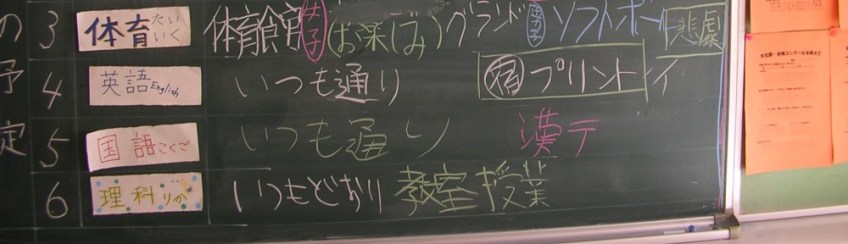 の 3 体育 たいいく 体育館 女子 グランド 男子 ソフトボール 悲劇
予 4 英語 English いつも通り 宿 プリント イ
定 5 国語 こくご いつも通り 漢テ
6 理科 りか いつもどおり 教室授業